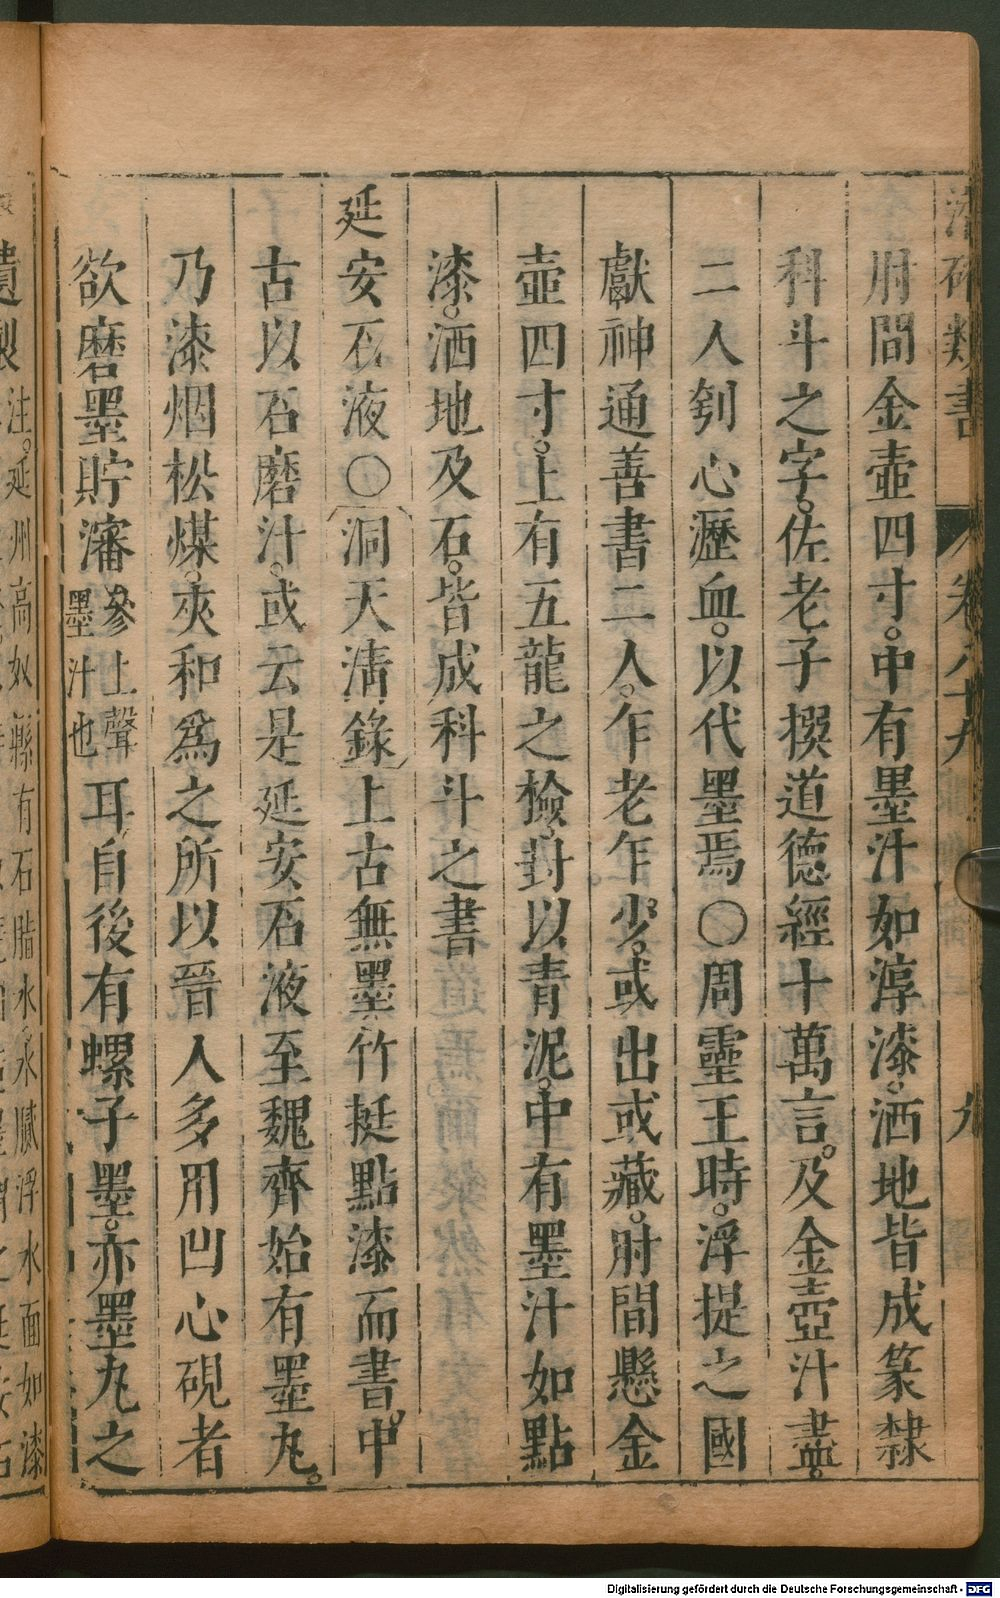 類書 卷八十九 九
肘間金壺四寸。中有墨汁如淳漆。洒地皆成篆隸
科斗之字。佐老子撰道德經十萬言。及金壺汁盡。
二人刳心瀝血。以代墨焉〇周靈王時。浮提之國
獻神通善書二人。乍老乍少。或出或藏。肘間懸金
壺四寸。上有五龍之檢。封以青泥。中有墨汁如點
漆。洒地及石。皆成科斗之書
延安石液〇洞天清錄上古無墨竹挺點漆而書中
古以石磨汁。或云是延安石液至魏齊始有墨丸。
乃漆烟松煤。夾和爲之所以晉人多用凹心硯者
欲磨墨貯瀋參上聲墨汁也耳自後有螺子墨。亦墨丸之
遺製注。延州高奴縣有石脂水水膩浮水面如漆
Digitalisierung gefördert durch die Deutsche Forschungsgemeinschaft - DFG